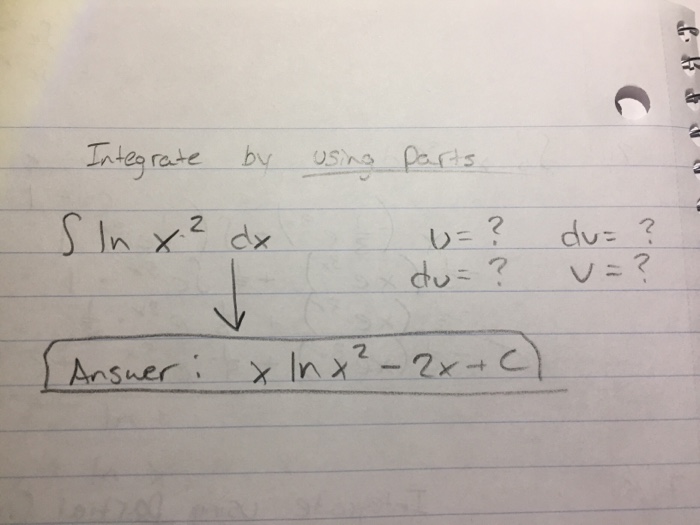 Integrate by using parts
∫ ln x² dx u = ? dv = ?
du = ? v = ?
Answer: x ln x² - 2x + C